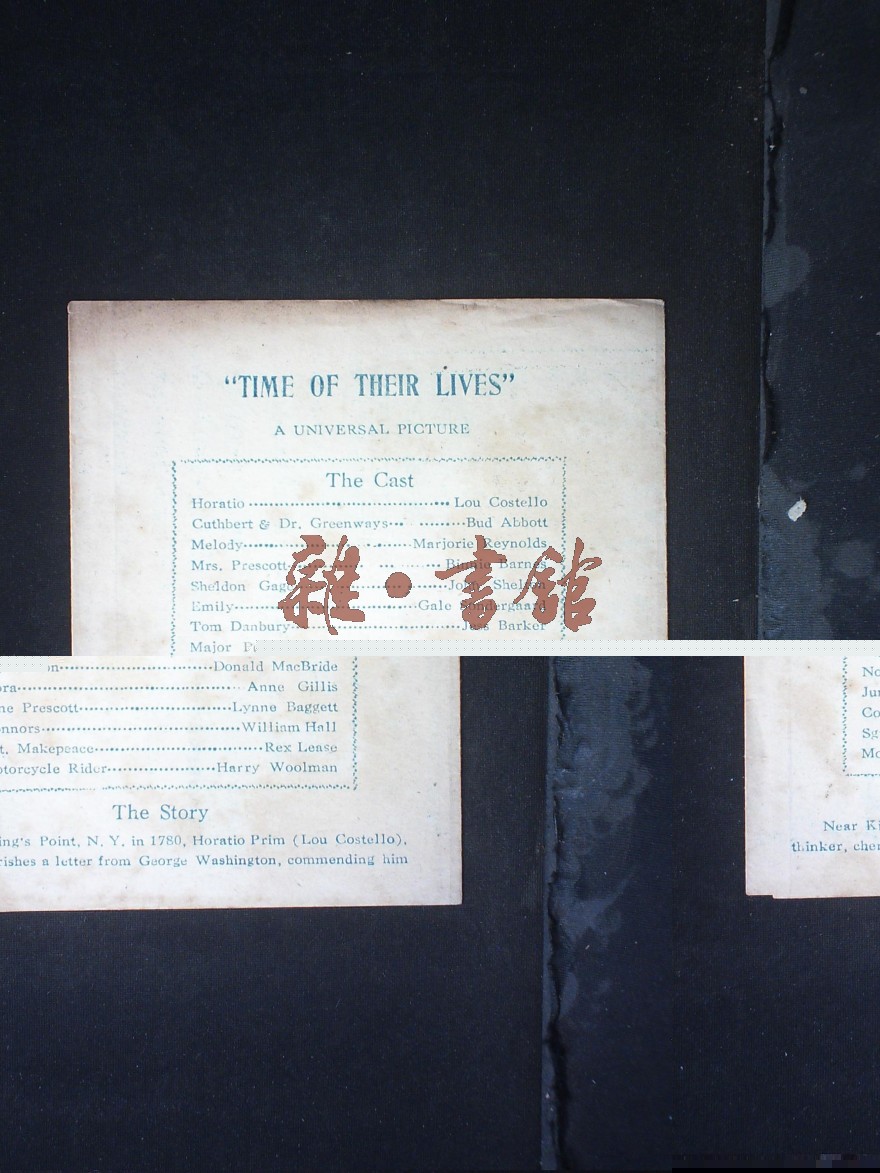 “TIME OF THEIR LIVES”
A UNIVERSAL PICTURE
The Cast
Horatio Lou Costello
Cuthbert & Dr. Greenways Bud Abbott
Melody Marjorie Reynolds
Mrs. Prescott Binnie Barnes
Sheldon Gage John Shelton
Emily Gale Sondergaard
Tom Danbury Jess Barker
Major
雜·書館
n Donald MacBride
ora Anne Gillis
ne Prescott Lynne Baggett
nnors William Hall
t. Makepeace Rex Lease
otorcycle Rider Harry Woolman
The Story
ing's Point, N. Y. in 1780, Horatio Prim (Lou Costello),
rishes a letter from George Washington, commending him
No
Jun
Co
Sg
Mo
Near Ki
thinker, cher